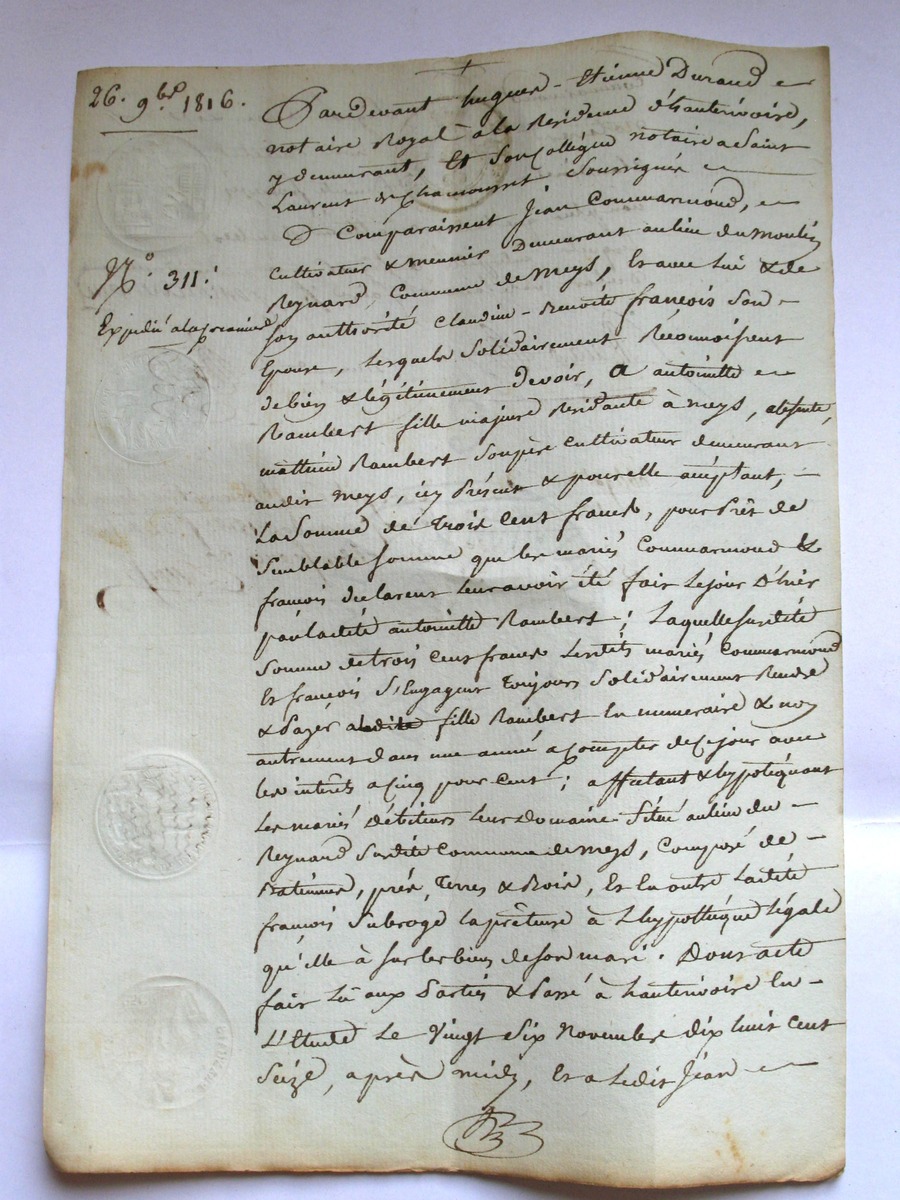 26. 9bre 1816.
N° 311.
Expédié à la premiere
Pardevant hugues - Etienne Durand
notaire Royal à la Residence d'hauterivoire,
y demeurant, Et Son Collègue notaire a Saint
Laurent de Chamousset Soussignés
Comparaissent Jean Commarmond,
Cultivateur & meunier Demeurant au lieu du moulin
Reynard, Commune de meys, Et avec lui & de
son authorité Claudine - Benoite françois Son
Epouse, Lesquels Solidairement Reconnoissent
de bien & légitimement Devoir, a antoinette
Rambert fille majeure Residante à meys, absente,
mathieu Rambert Son père Cultivateur demeurant
audit meys, icy Présent & pour elle acceptant,
La Somme de trois Cent francs, pour Prêt de
Semblable Somme que les mariés Commarmond &
françois declarent leur avoir été fait le jour D'hier
par ladite antoinette Rambert ; Laquelle Susdite
Somme de trois Cent francs lesdits mariés Commarmond
Et françois S'Engagent toujours Solidairement Rendre
& Payer a ladite fille Rambert En numeraire & non
autrement dans une année a Compter de Ce jour avec
les interêts a Cinq pour Cent ; affectant & hypotéquant
Les mariés Débiteurs Leur Domaine Situé au lieu du
Reynard Susdite Commune de meys, Composé de
Batiments, prés, Terres & Bois, Et En outre Ladite
françois Subroge la prêteuse à L'hypothèque légale
qu'elle à Sur les biens de Son mari. Dont acte
fait Lû aux Parties & Passé à hauterivoire En
L'Etude Le Vingt Six Novembre dix huit Cent
Seize, après midy, Et a Ledit Jean